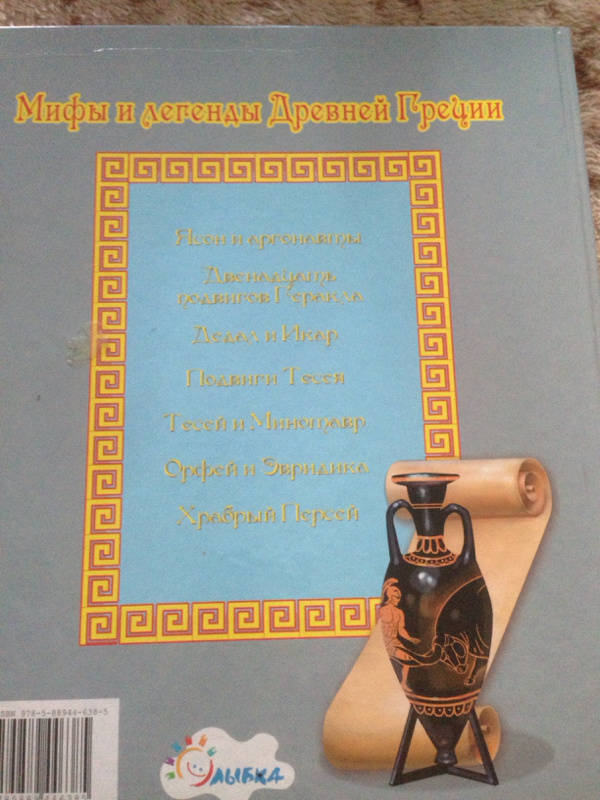 Мифы и легенды Древней Греции
Ясон и аргонавты
Двенадцать
подвигов Геракла
Дедал и Икар
Подвиги Тесея
Тесей и Минотавр
Орфей и Эвридика
Храбрый Персей
ISBN 978-5-88944-630-5
УЛЫБКА